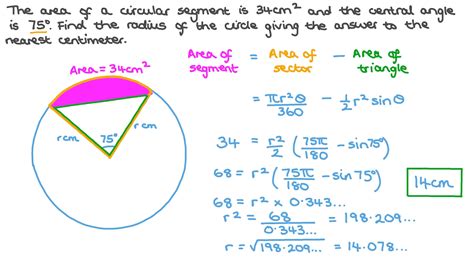 The area of a circular segment is 34cm² and the central angle
is 75°. Find the radius of the circle giving the answer to the
nearest centimeter.
Area = 34cm²
r cm
r cm
75°
Area of segment = Area of sector - Area of triangle
= πr²θ/360 - 1/2 r² sin θ
34 = r²/2 (75π/180 - sin 75°)
68 = r² (75π/180 - sin 75°)
68 = r² × 0.343...
r² = 68/0.343... = 198.209...
r = √198.209... = 14.078...
14cm